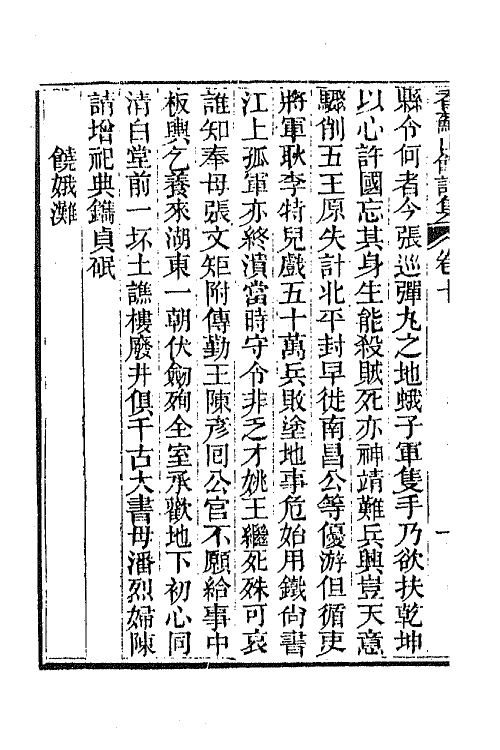 香蘇山館詩集 卷十 一
縣令何者今張巡彈丸之地蛾子軍隻手乃欲扶乾坤
以心許國忘其身生能殺賊死亦神靖難兵興豈天意
驟削五王原失計北平封早徙南昌公等優游但循吏
將軍耿李特兒戲五十萬兵敗塗地事危始用鐵尚書
江上孤軍亦終潰當時守令非乏才姚王繼死殊可哀
誰知奉母張文矩附傳勤王陳彥回公官不願給事中
板輿乞養來湖東一朝伏劒殉全室承歡地下初心同
清白堂前一坏土譙樓廢井俱千古大書母潘烈婦陳
請增祀典鐫貞砥
饒娥灘